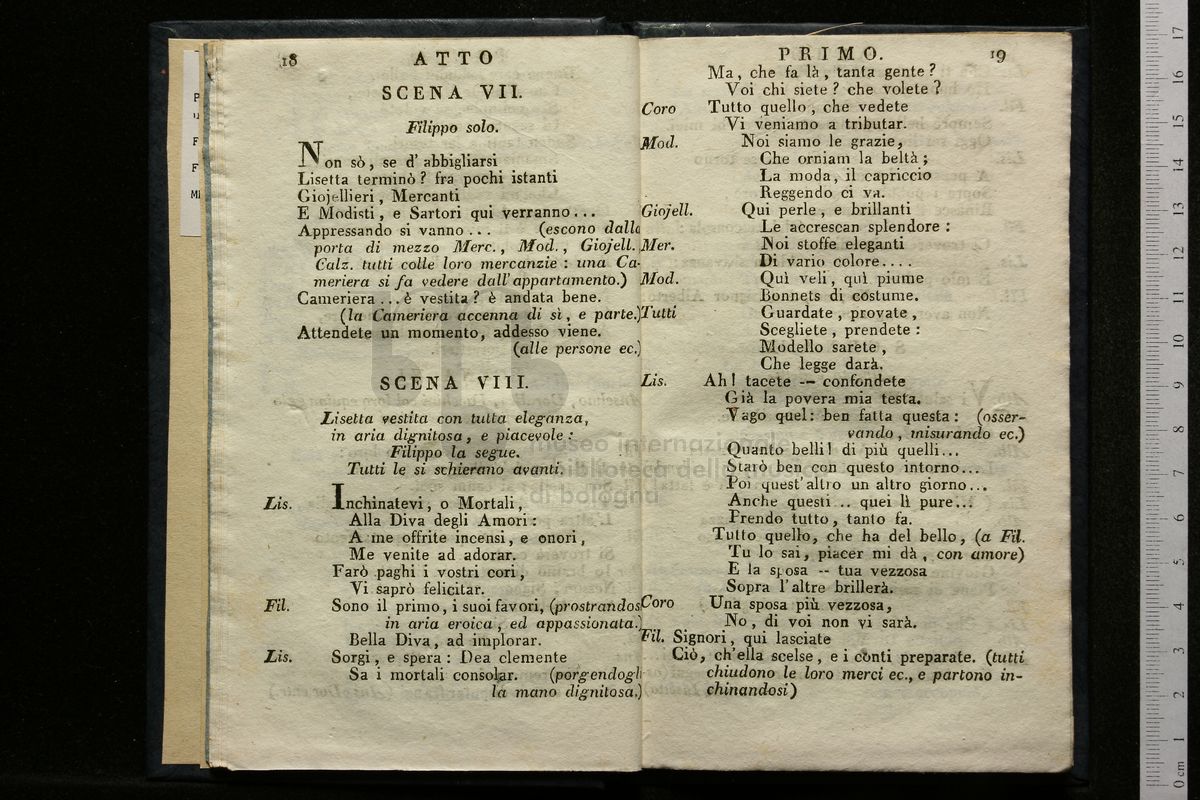 18 ATTO
SCENA VII.
Filippo solo.
Non sò, se d'abbigliarsi
Lisetta terminò? fra pochi istanti
Giojellieri, Mercanti
E Modisti, e Sartori qui verranno...
Appressando si vanno... (escono dalla
porta di mezzo Merc., Mod., Giojell.
Calz. tutti colle loro mercanzie: una Ca-
meriera si fa vedere dall'appartamento.)
Cameriera... è vestita? è andata bene.
(la Cameriera accenna di sì, e parte.)
Attendete un momento, addesso viene.
(alle persone ec.)
SCENA VIII.
Lisetta vestita con tutta eleganza,
in aria dignitosa, e piacevole:
Filippo la segue.
Tutti le si schierano avanti.
Lis. Inchinatevi, o Mortali,
Alla Diva degli Amori:
A me offrite incensi, e onori,
Me venite ad adorar.
Farò paghi i vostri cori,
Vi saprò felicitar.
Fil. Sono il primo, i suoi favori, (prostrandos
in aria eroica, ed appassionata.)
Bella Diva, ad implorar.
Lis. Sorgi, e spera: Dea clemente
Sa i mortali consolar. (porgendogli
la mano dignitosa.)
PRIMO. 19
Ma, che fa là, tanta gente?
Voi chi siete? che volete?
Coro Tutto quello, che vedete
Vi veniamo a tributar.
Mod. Noi siamo le grazie,
Che orniam la beltà;
La moda, il capriccio
Reggendo ci va.
Giojell. Qui perle, e brillanti
Le accrescan splendore:
Mer. Noi stoffe eleganti
Di vario colore....
Mod. Quì veli, quì piume
Bonnets di costume.
Tutti Guardate, provate,
Scegliete, prendete:
Modello sarete,
Che legge darà.
Lis. Ah! tacete -- confondete
Già la povera mia testa.
Vago quel: ben fatta questa: (osser-
vando, misurando ec.)
Quanto belli! di più quelli...
Starò ben con questo intorno...
Poi quest'altro un altro giorno...
Anche questi .. quei lì pure...
Prendo tutto, tanto fa.
Tutto quello, che ha del bello, (a Fil.
Tu lo sai, piacer mi dà, con amore)
E la sposa -- tua vezzosa
Sopra l'altre brillerà.
Coro Una sposa più vezzosa,
No, di voi non vi sarà.
Fil. Signori, qui lasciate
Ciò, ch'ella scelse, e i conti preparate. (tutti
chiudono le loro merci ec., e partono in-
chinandosi)
museo internazionale
biblioteca della musica
di bologna
0 cm 1 2 3 4 5 6 7 8 9 10 11 12 13 14 15 16 17